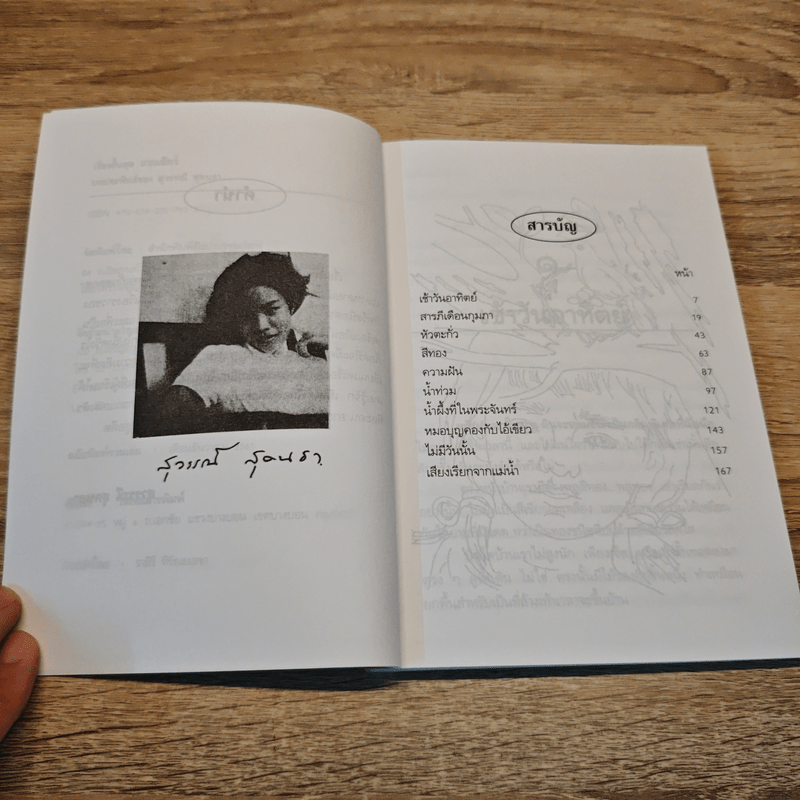 สุวรรณี สุคนธา
สารบัญ
หน้า
เช้าวันอาทิตย์ 7
สารภีเดือนกุมภา 19
หัวตะกั่ว 43
สีทอง 63
ความฝัน 87
น้ำท่วม 97
น้ำผึ้งที่ในพระจันทร์ 121
หมอบุญคองกับไอ้เขียว 143
ไม่มีวันนั้น 157
เสียงเรียกจากแม่น้ำ 167